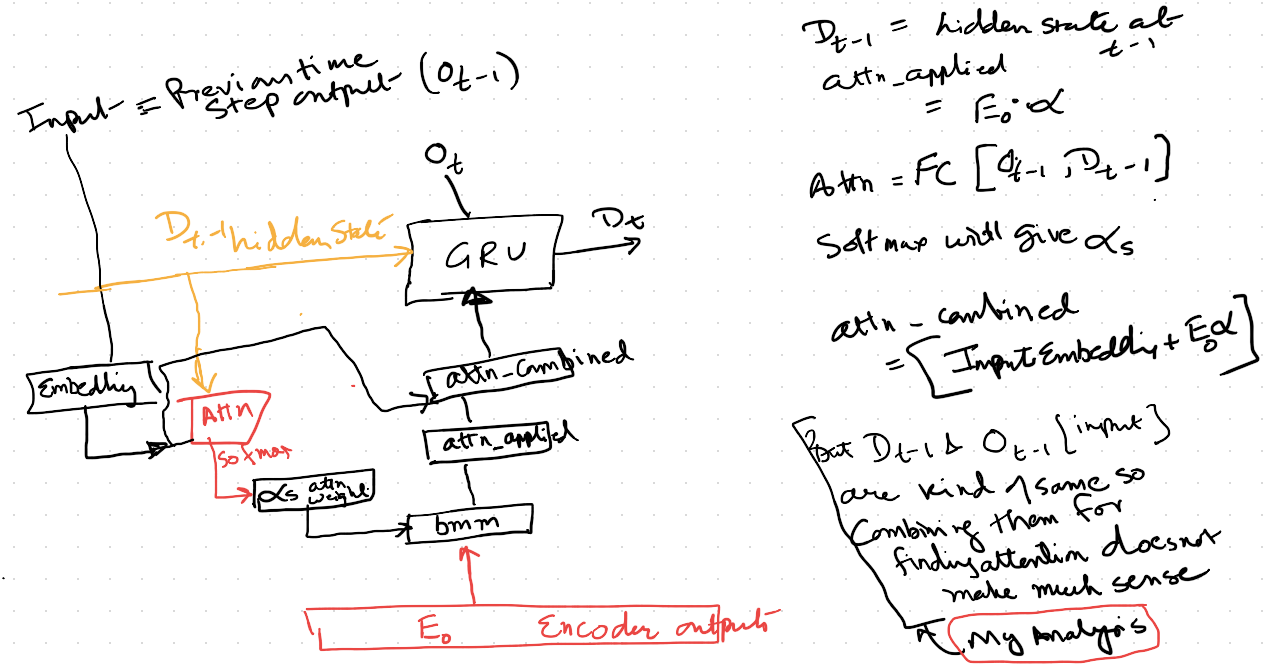 Input = Previous time
step output (O_t-1)
O_t
D_t-1 hidden state
GRU
D_t
Embedding
Attn
softmax
αs attn
weight
attn_combined
attn_applied
bmm
E_o Encoder outputs
D_t-1 = hidden state at
t-1
attn_applied
= E_o·α
Attn = FC [O_t-1, D_t-1]
Softmax will give αs
attn_combined
= [Input Embedding + E_oα]
But D_t-1 & O_t-1 {input}
are kind of same so
Combining them for
finding attention does not
make much sense
My Analysis